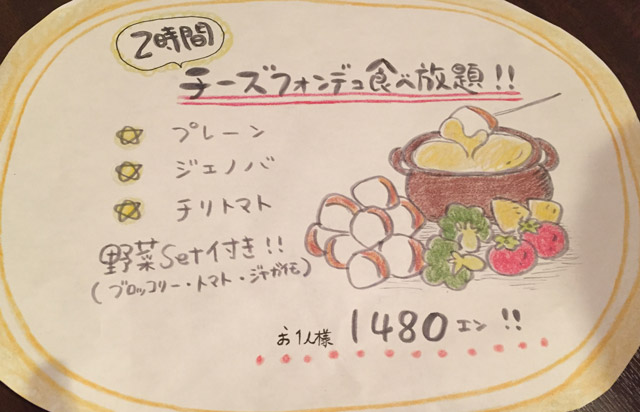 2時間
チーズフォンデュ食べ放題!!
プレーン
ジェノバ
チリトマト
野菜Setイ付き!!
(ブロッコリー・トマト・ジャガイモ)
お1人様 1480エン!!